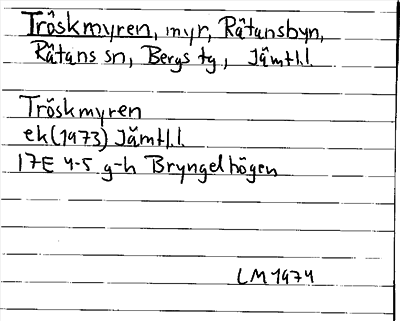 Tröskmyren, myr, Råtansbyn,
Råtans sn, Bergs tg, Jämtl.l.
Tröskmyren
ek (1973) Jämtl.l.
17E 4-5 g-h Bryngelhögen
LM 1974